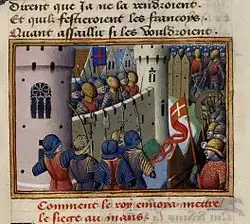 dirent que ja ne la rendroient
Et quilz festieroient les francoys
Quant assaillir si les vouldroient.
Comment le roy envoia mettre
le siege au mans.